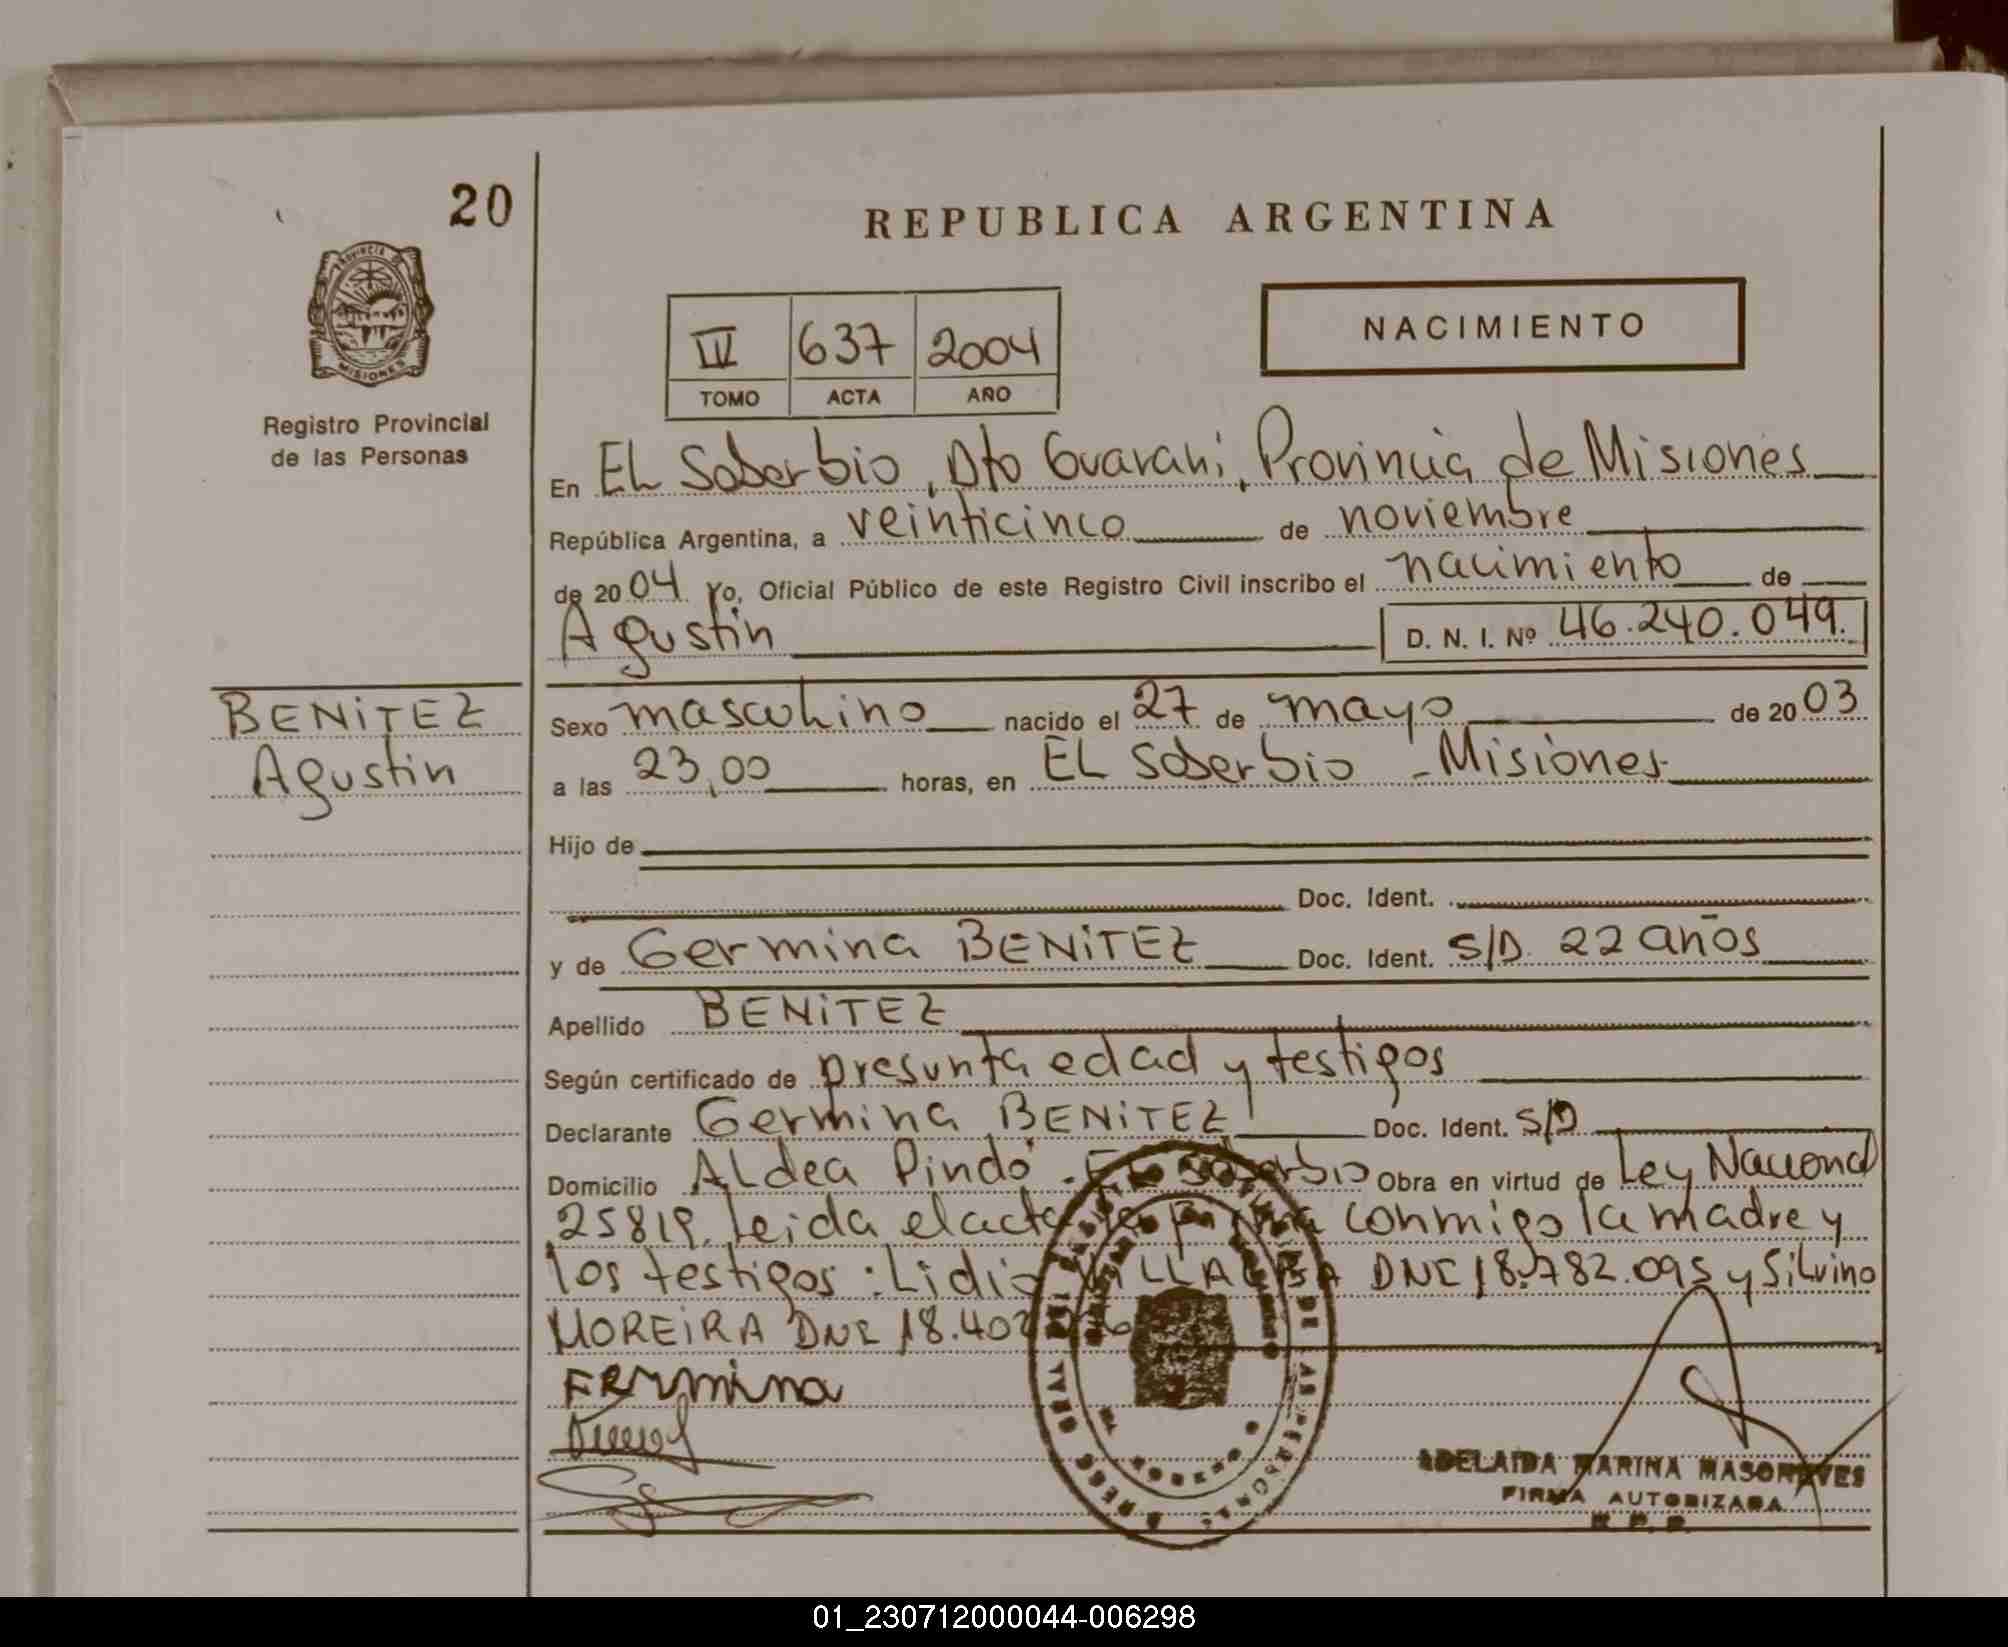 20
REPUBLICA ARGENTINA
PROVINCIA DE
MISIONES
Registro Provincial
de las Personas
IV 637 2004
TOMO ACTA AÑO
NACIMIENTO
En EL Soberbio, Dto Guaraní, Provincia de Misiones
República Argentina, a veinticinco de noviembre
de 2004 Yo, Oficial Público de este Registro Civil inscribo el nacimiento de
Agustin D. N. I. Nº 46.240.049.
BENiTEZ
Agustin
Sexo masculino nacido el 27 de mayo de 2003
a las 23,00 horas, en EL Soberbio - Misiones
Hijo de
Doc. Ident.
y de Germina BENiTEZ Doc. Ident. S/D. 22 años
Apellido BENiTEZ
Según certificado de presunta edad y testigos
Declarante Germina BENiTEZ Doc. Ident. S/D
Domicilio ALdea Pindó - EL Soberbio Obra en virtud de Ley Nacional
25819. Leida el acta la firma conmigo la madre y
los testigos: Lidia VILLALBA DNI 18.782.095 y Silvino
MOREiRA DNI 18.402
FERmina
ADELAIDA MARINA MASGREVES
FIRMA AUTORIZADA
R. P. P.
01_230712000044-006298